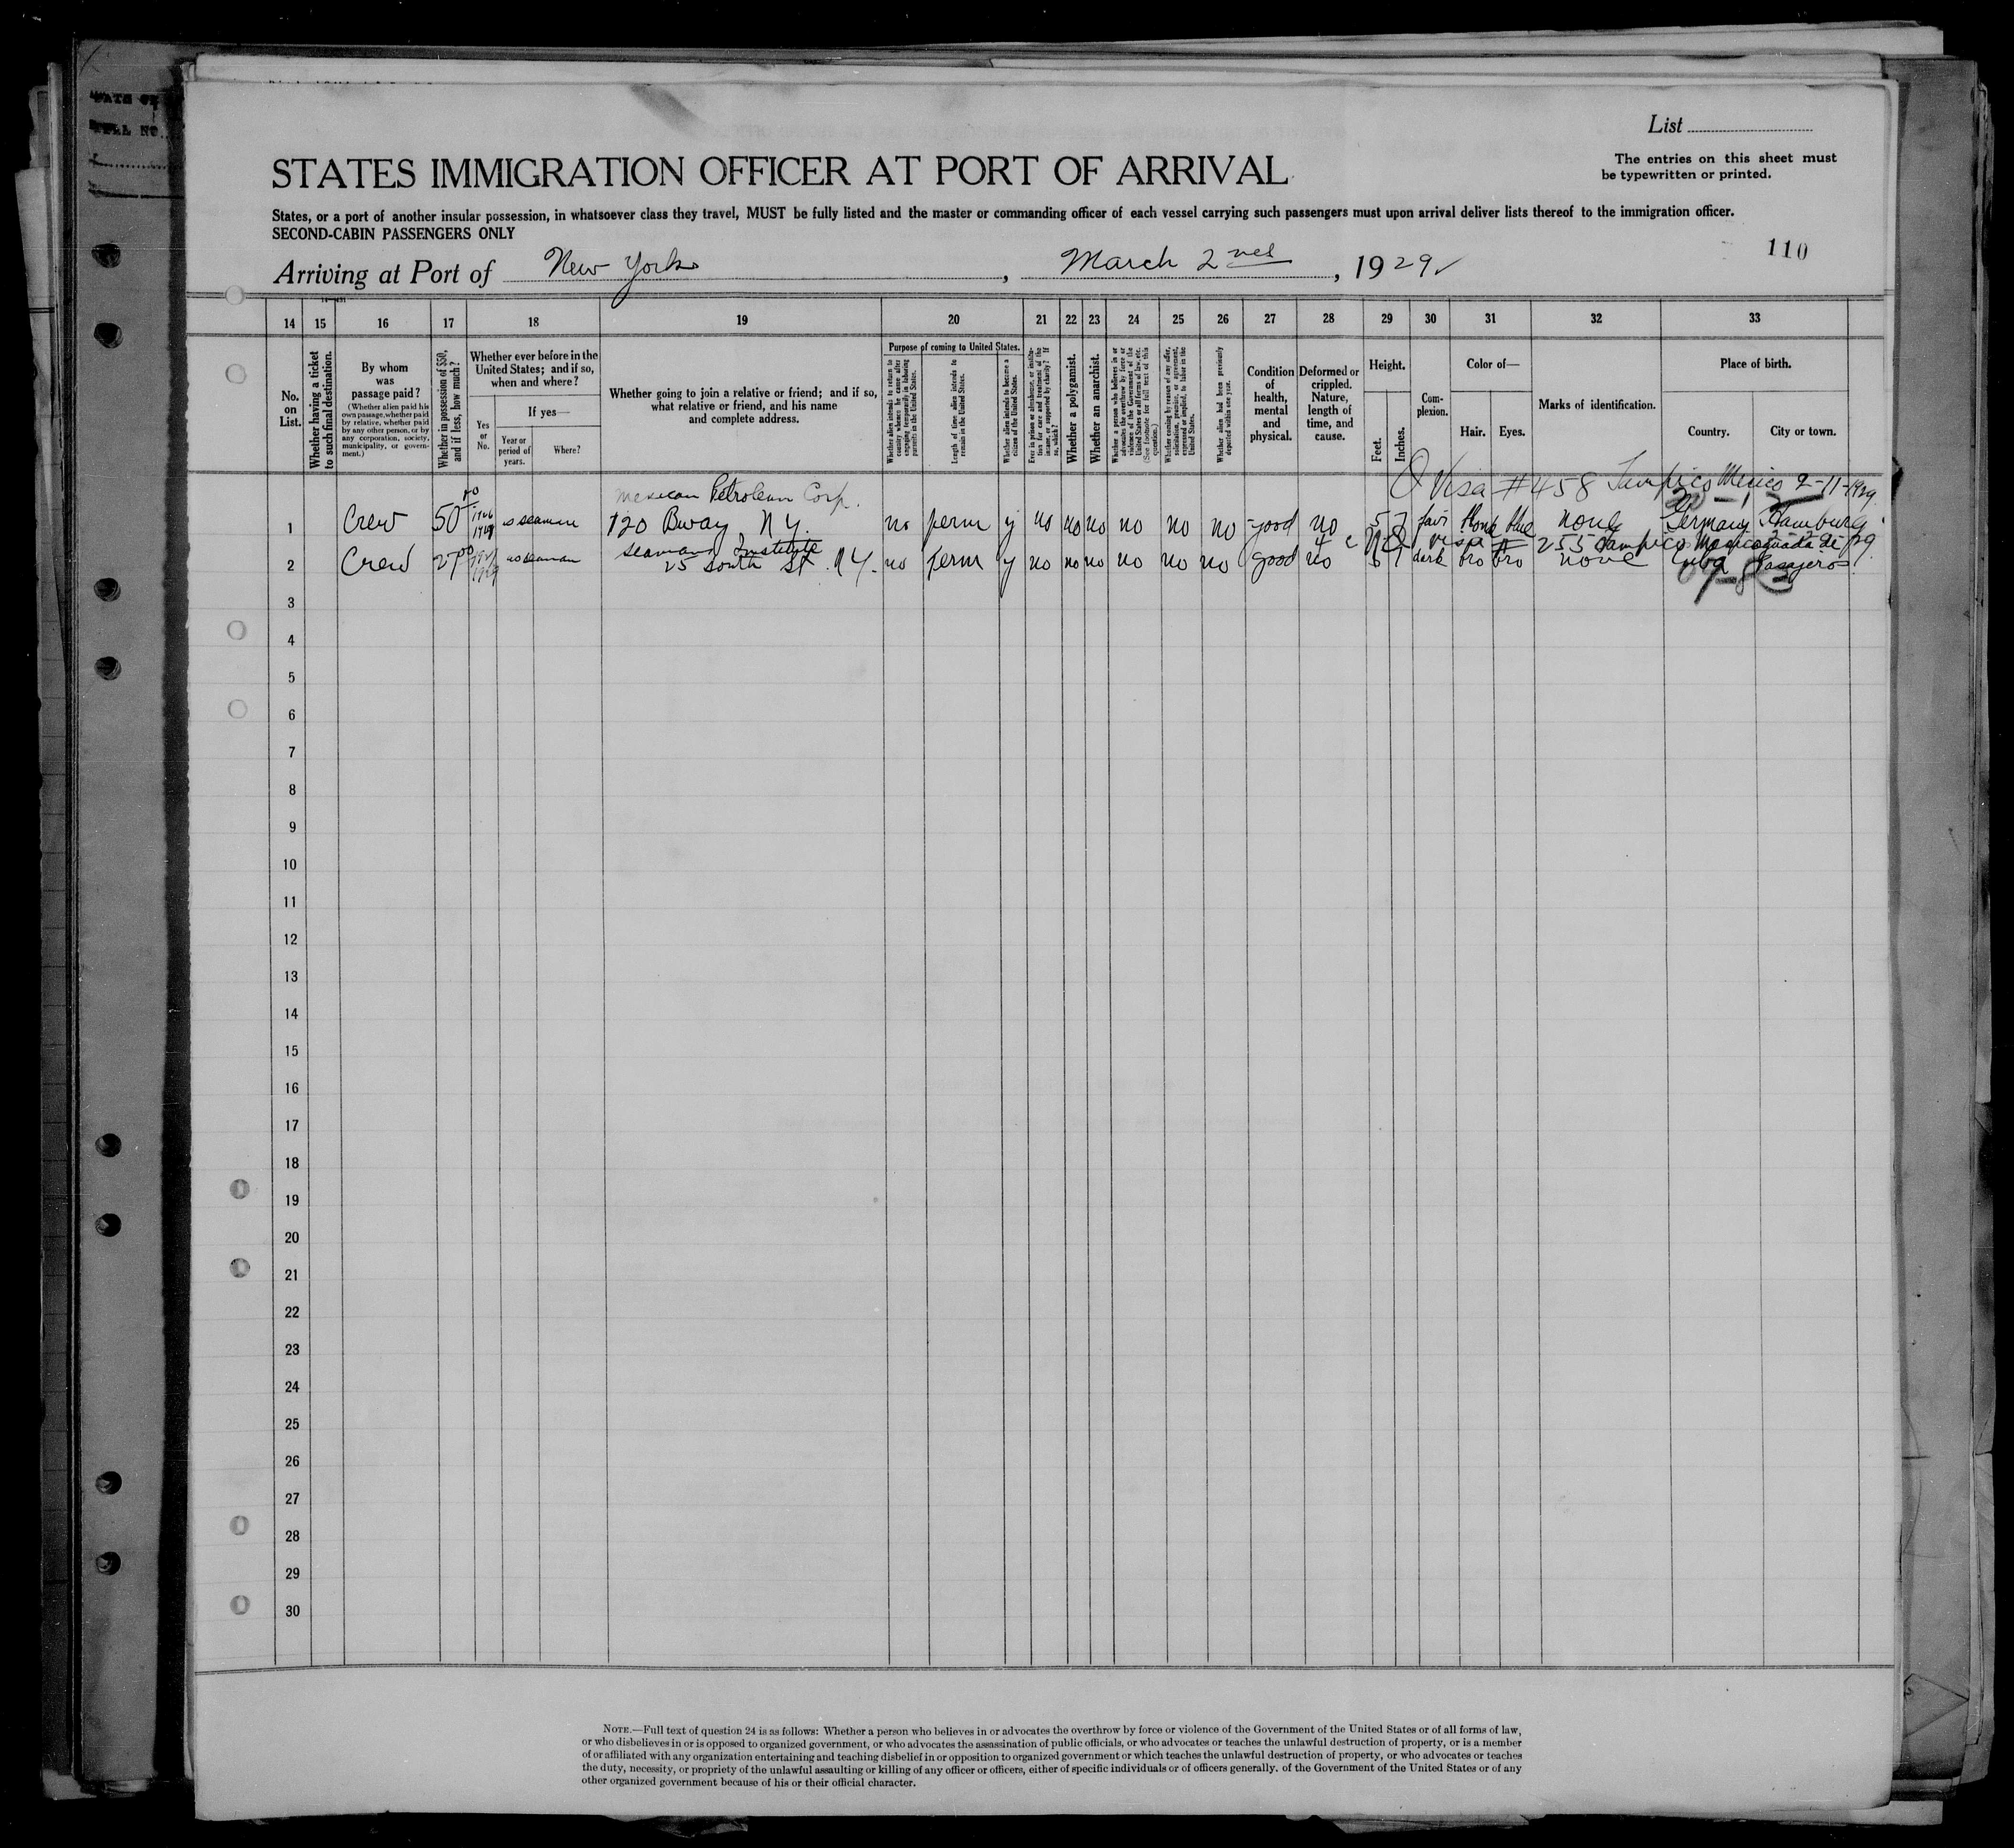 List
The entries on this sheet must
be typewritten or printed.
STATES IMMIGRATION OFFICER AT PORT OF ARRIVAL
States, or a port of another insular possession, in whatsoever class they travel, MUST be fully listed and the master or commanding officer of each vessel carrying such passengers must upon arrival deliver lists thereof to the immigration officer.
SECOND-CABIN PASSENGERS ONLY
110
Arriving at Port of New York, March 2nd, 1929
14 15 16 17 18 19 20 21 22 23 24 25 26 27 28 29 30 31 32 33
No. on List.
Whether having a ticket to such final destination.
By whom was passage paid?
(Whether alien paid his own passage, whether paid by relative, whether paid by any other person, or by any corporation, society, municipality, or government.)
Whether in possession of $50, and if less, how much?
Whether ever before in the United States; and if so, when and where?
Yes or No.
If yes—
Year or period of years.
Where?
Whether going to join a relative or friend; and if so, what relative or friend, and his name and complete address.
Purpose of coming to United States.
Whether alien intends to return to country whence he came after engaging temporarily in laboring pursuits in the United States.
Length of time alien intends to remain in the United States.
Whether alien intends to become a citizen of the United States.
Ever in prison or almshouse, or institution for care and treatment of the insane, or supported by charity? If so, which?
Whether a polygamist.
Whether an anarchist.
Whether a person who believes in or advocates the overthrow by force or violence of the Government of the United States or all forms of law, etc. (See footnote for full text of this question.)
Whether coming by reason of any offer, solicitation, promise, or agreement, expressed or implied, to labor in the United States.
Whether alien had been previously deported within one year.
Condition of health, mental and physical.
Deformed or crippled. Nature, length of time, and cause.
Height.
Feet.
Inches.
Complexion.
Color of—
Hair.
Eyes.
Marks of identification.
Place of birth.
Country.
City or town.
Mexican Petroleum Corp. Visa #458 Tampico Mexico 2-11-1929
1 Crew 50 00 as seaman 120 Bway N Y. no perm y no no no no no no good no 5 7 fair blond blue none Germany Hamburg
Seamans Institute visa # 255 Tampico Mexico
2 Crew as seaman 25 South St N Y. no perm y no no no no no no good no 5 7 dark bro bro none Cuba Pasajeros
3
4
5
6
7
8
9
10
11
12
13
14
15
16
17
18
19
20
21
22
23
24
25
26
27
28
29
30
NOTE.—Full text of question 24 is as follows: Whether a person who believes in or advocates the overthrow by force or violence of the Government of the United States or of all forms of law,
or who disbelieves in or is opposed to organized government, or who advocates the assassination of public officials, or who advocates or teaches the unlawful destruction of property, or is a member
of or affiliated with any organization entertaining and teaching disbelief in or opposition to organized government or which teaches the unlawful destruction of property, or who advocates or teaches
the duty, necessity, or propriety of the unlawful assaulting or killing of any officer or officers, either of specific individuals or of officers generally. of the Government of the United States or of any
other organized government because of his or their official character.